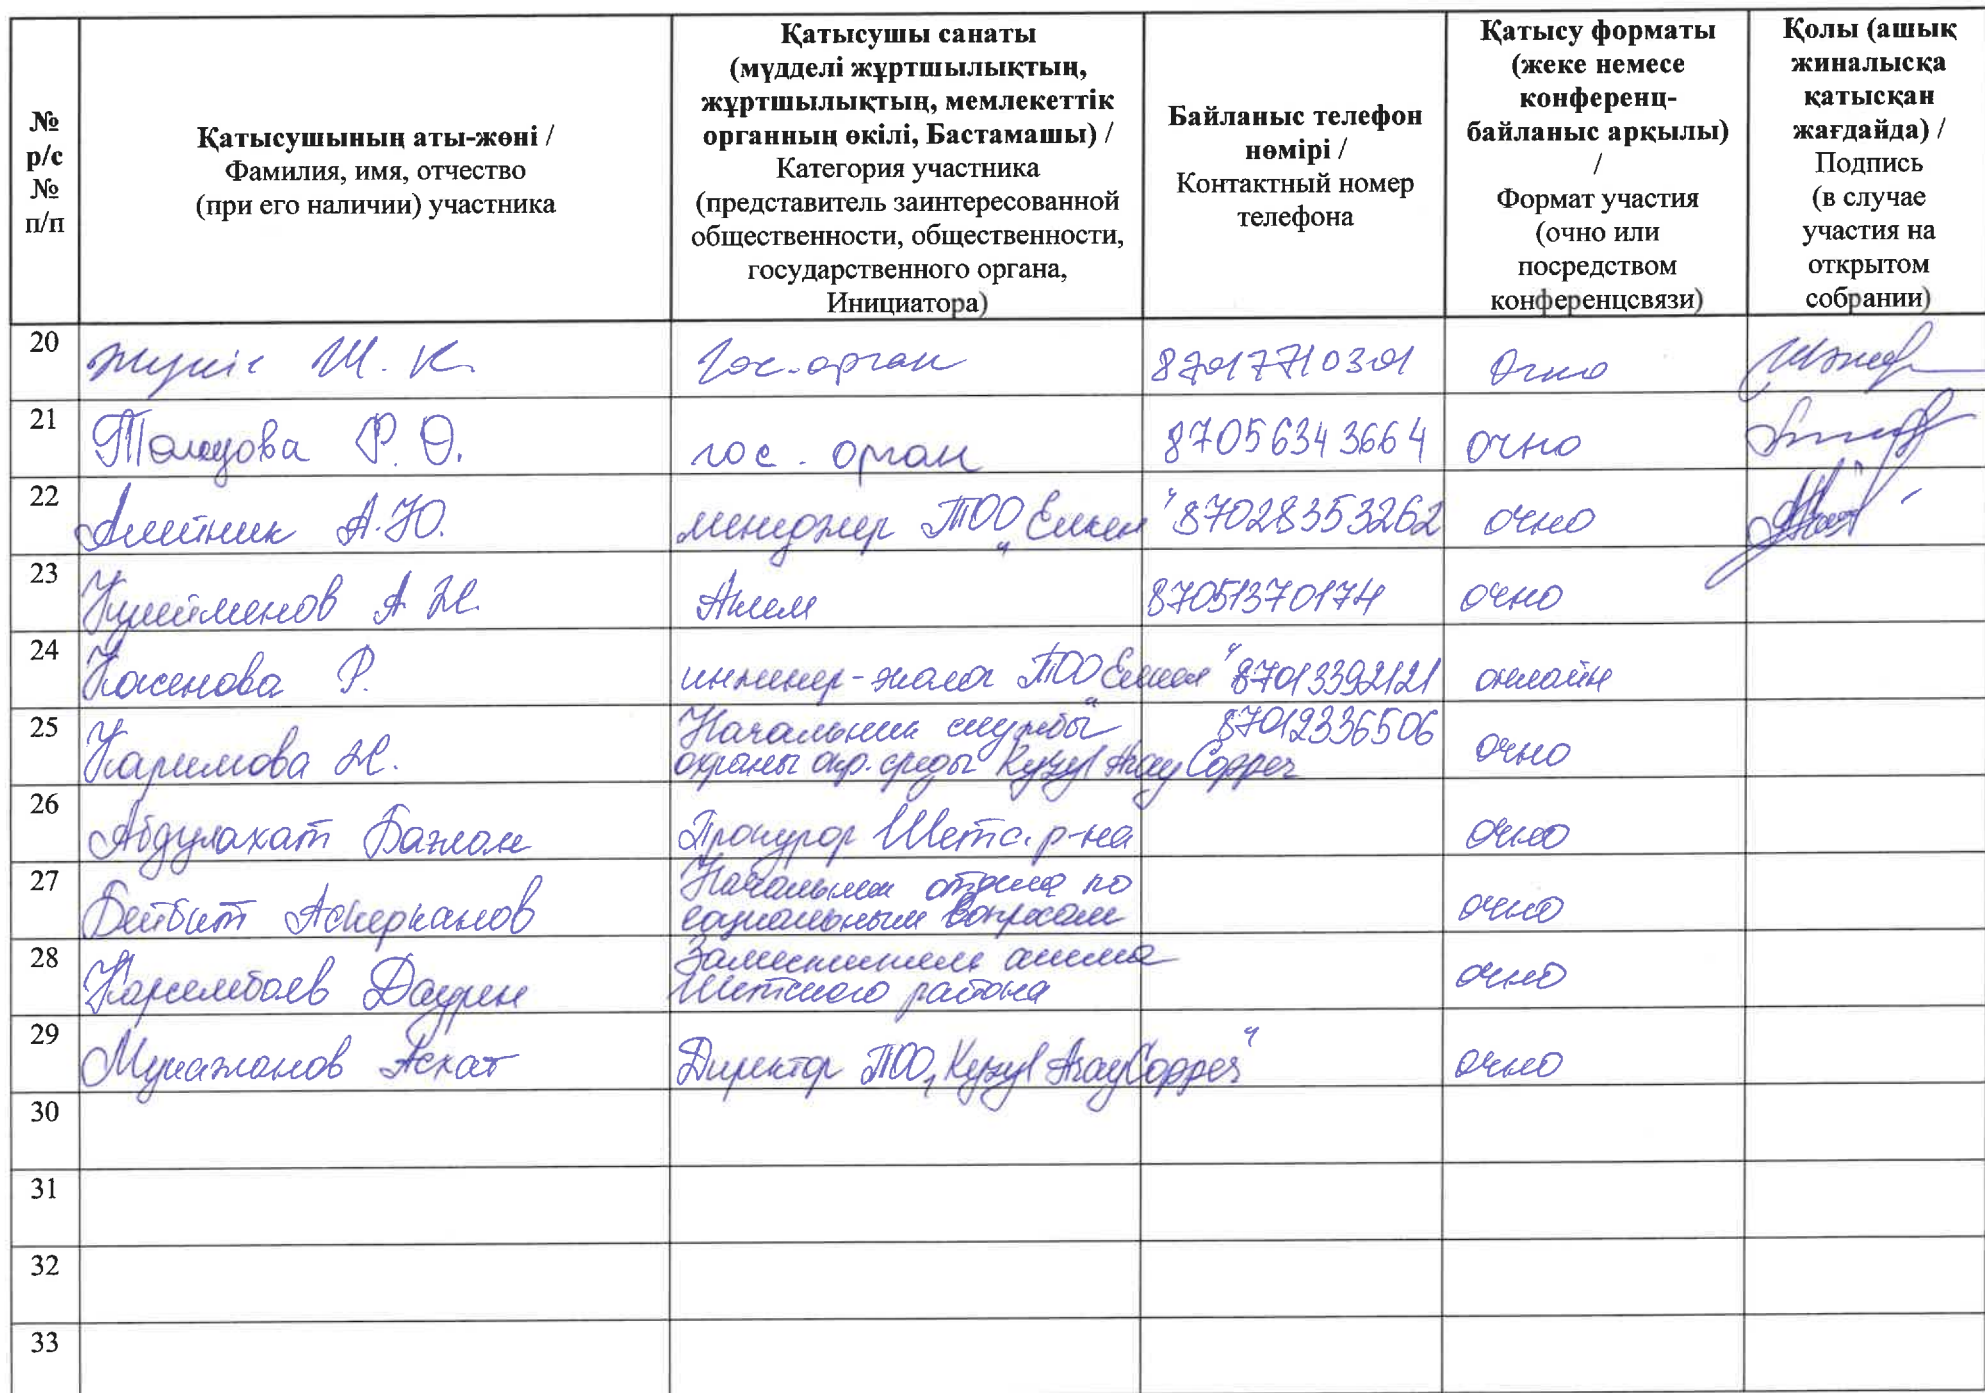 № р/с № п/п
Қатысушының аты-жөні /
Фамилия, имя, отчество
(при его наличии) участника
Қатысушы санаты
(мүдделі жұртшылықтың,
жұртшылықтың, мемлекеттік
органның өкілі, Бастамашы) /
Категория участника
(представитель заинтересованной
общественности, общественности,
государственного органа,
Инициатора)
Байланыс телефон
нөмірі /
Контактный номер
телефона
Қатысу форматы
(жеке немесе
конференц-
байланыс арқылы)
/
Формат участия
(очно или
посредством
конференцсвязи)
Қолы (ашық
жиналысқа
қатысқан
жағдайда) /
Подпись
(в случае
участия на
открытом
собрании)
20 Ш. К. Гос. орган 87017710301 Очно
21 Р. О. гос. орган 87056343664 очно
22 А.Ю. менеджер ТОО „Елкен" 87028353262 очно
23 Кулейменов А Ж. Аким 87051370174 очно
24 Касенова Р. инженер-эколог ТОО „Елкен" 87013392121 онлайн
25 Каримова Ж. Начальник службы 87012336506 очно
охраны окр. среды Kyzyl Aray Copper
26 Абдулахат Бахлан Прокурор Шетс. р-на очно
27 Бейбит Аскерханов Начальник отдела по очно
социальным вопросам
28 Карсембаев Даурен Заместитель акима очно
Шетского района
29 Мукажанов Асхат Директор ТОО „Kyzyl Aray Copper" очно
30
31
32
33